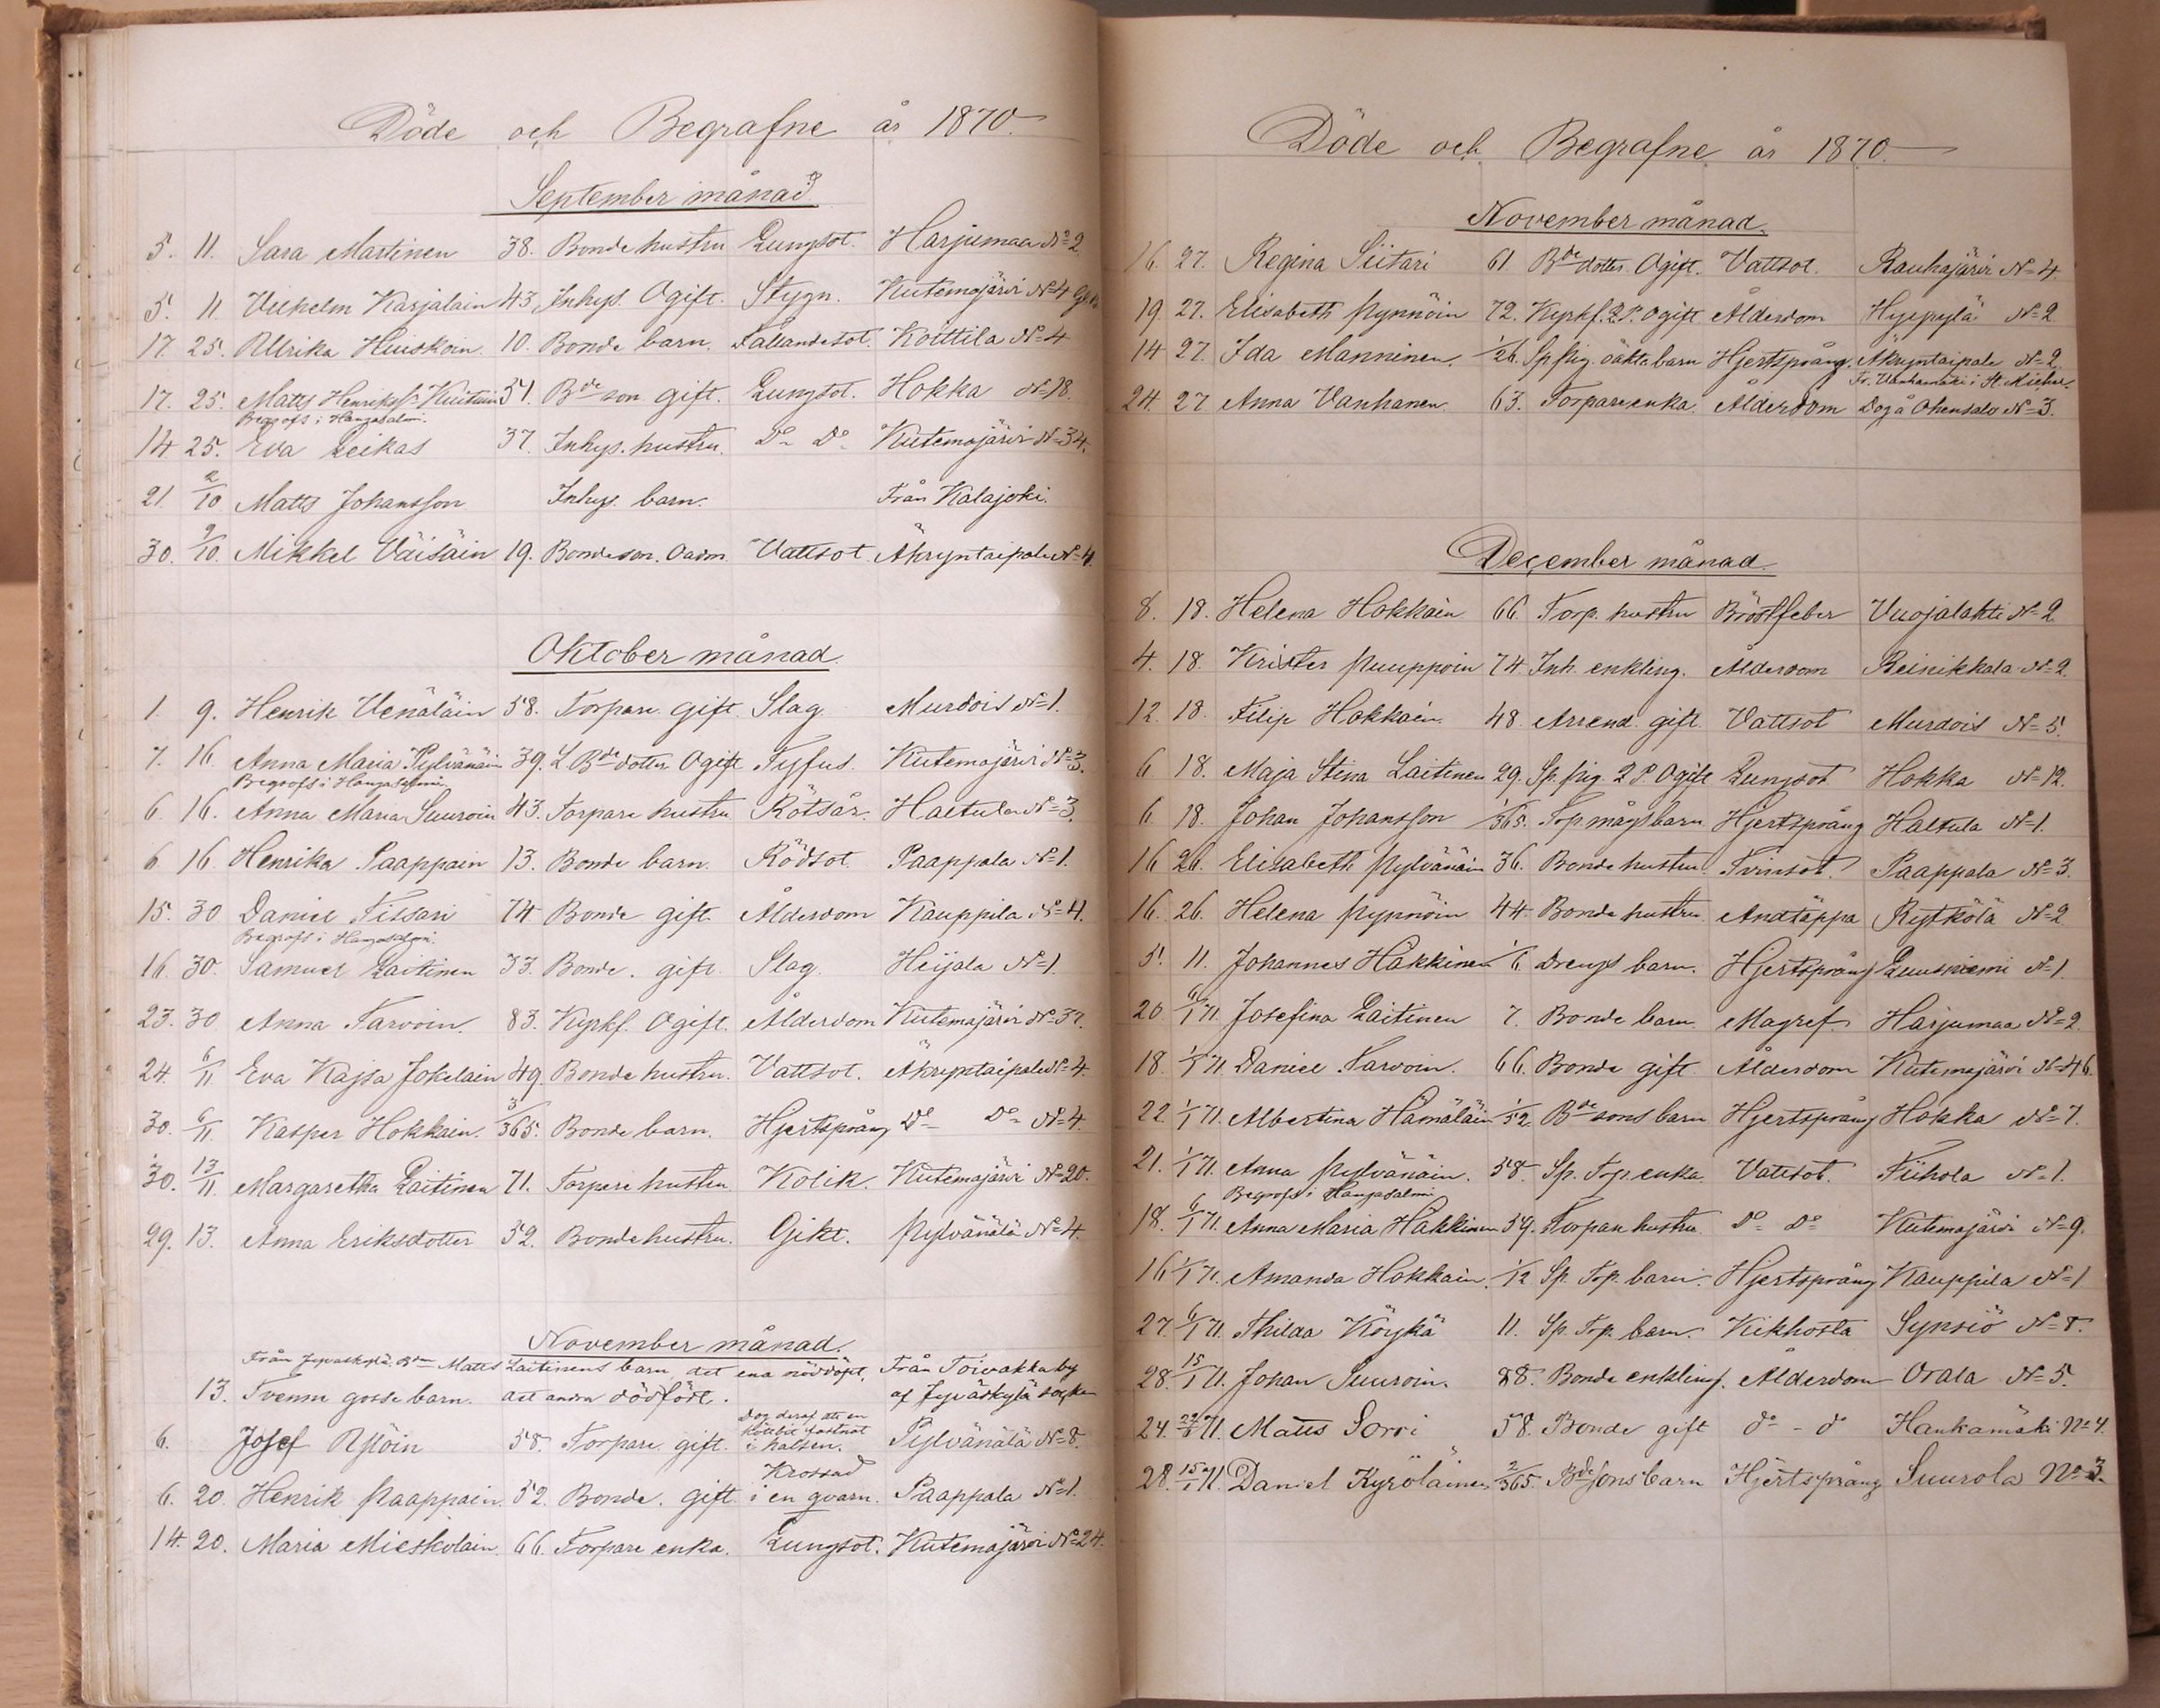 Döde och Begrafne år 1870.
September månad
5. 11. Sara Martinen 38. Bonde hustru Lungsot. Harjumaa No 2
5. 11. Vilhelm Karjalain 43 Inhys. Ogift. Stygn. Kutemajärvi No 4
17. 25. Ulrika Huiskoin 10. Bonde barn. Fallandesot. Koittila No 4
17. 25. Matts Henriksson 51. Bde son gift. Lungsot. Hokka No 18.
Begrofs i Hangasalmi.
14. 25. Eva Leikas 37. Inhys. hustru. Do Do Kutemajärvi No 34.
21. 2/10 Matts Johansson Inhys. barn. Från Kalajoki.
30. 9/10. Mikkel Väisäin 19. Bondeson. Oadm. Vattsot Äkryntaipale No 4.
Oktober månad.
1. 9. Henrik Venäläin 58. Torpare gift Slag Murdois No 1.
7. 16. Anna Maria Pylvänäin 39. L. Bde dotter Ogift Tyfus. Kutemajärvi No 3.
Begrofs i Hangasalmi
6. 16. Anna Maria Suuroin 43. Torpare hustru Rötsår. Haltula No 3.
6 16 Henrika Paappain 13. Bonde barn. Rödsot. Paappala No 1.
15. 30 Daniel Tissari 74 Bonde gift. Ålderdom Kauppila No 4.
Begrofs i Hangasalmi.
16. 30. Samuel Laitinen 33. Bonde. gift. Slag. Heijala No 1.
23. 30 Anna Tarvoin. 83. Kyrkf. Ogift. Ålderdom Kutemajärvi No 37.
24. 6/11 Eva Kajsa Jokelain 49 Bonde hustru. Vattsot. Äkryntaipale No 4.
30. 6/11 Kasper Hokkain. 3/365. Bonde barn. Hjertsprång Do Do No 4.
30. 13/11. Margaretha Laitinen 71. Torpare hustru Kolik. Kutemajärvi No 20.
29. 13. Anna Eriksdotter 52. Bondehustru. Gikt. Pylvänälä No 4.
November månad.
Från Jyväskylä Matts Laitinens barn, det ena nöddöpt, Från Toivakka by
13. Tvenne gosse barn. det andra dödfödt. af Jyväskylä socken
Dog deraf att en
köttbit fastnat
6. Josef 58. Torpare gift. i halsen. Pylvänälä No 8.
Krossad
6. 20. Henrik Paappain. 52. Bonde. gift i en qvarn. Paappala No 1.
14. 20. Maria Mieskolain. 66. Torpare enka. Lungsot. Kutemajärvi No 24.
Döde och Begrafne år 1870.
November månad.
16. 27. Regina Siitari 61. Bde dotter. Ogift. Vattsot. Rauhajärvi No 4.
19. 27. Elisabeth Pynnöin 72. Kyrkf. 2 P. Ogift Ålderdom Hyypylä No 2
14 27. Ida Manninen. 1/26. Sp. pig. oäkta barn Hjertsprång. Äkryntaipale No 2.
Fr. Vanhamäki i St. Michel.
24. 27 Anna Vanhanen 63. Torpareenka. Ålderdom Dog å Ohensalo No 3.
December månad.
8. 18. Helena Hokkain 66. Torp. hustru Bröstfeber Vuojalahti No 2.
4. 18. Krister Puuppoin 74. Inh. enkling. Ålderdom Reinikkala No 2.
12. 18. Filip Hokkain. 48. Arrend. gift. Vattsot Murdois No 5.
6 18. Maja Stina Laitinen 29. Sp. pig. 2 P. Ogift Lungsot Hokka No 12.
6 18. Johan Johansson 1/365. Torp mågs barn. Hjertsprång Haltula No 1.
16 26. Elisabeth Pylvänäin 36. Bonde hustru. Tvinsot. Paappala No 3.
16. 26. Helena Pynnöin 44. Bonde hustru. Andtäppa Rytkölä No 2
5. 11. Johannes Häkkinen 1/6. Drengs barn. Hjertsprång Luusniemi No 1.
20 6/1 71. Josefina Laitinen 7. Bonde barn. Magref. Harjumaa No 2.
18. 1/1 71 Daniel Tarvoin. 66. Bonde gift. Ålderdom Kutemajärvi No 46.
22. 1/1 71. Albertina Hämäläin 1/52. Bde sons barn Hjertsprång Hokka No 7.
21. 1/1 71. Anna Pylvänäin. 58. Sp. Torp. enka. Vattsot. Tiihola No 1.
Begrofs i Hangasalmi
18. 6/1 71. Anna Maria Häkkinen 59. Torpare hustru. Do Do Kutemajärvi No 9.
16 1/1 71. Amanda Hokkain. 1/12 Sp. Torp. barn. Hjertsprång Kauppila No 1
27. 6/1 71. Thilda Köykä 11. Sp. Torp. barn. Kikhosta Synsiö No 8.
28. 15/1 71. Johan Suuroin. 88. Bonde enkling. Ålderdom Orala No 5.
24. 71. Matts Sorri 58. Bonde gift do - do Hankamäki No 4.
28. 15/1 71. Daniel Kyröläinen 2/365. Bde sons barn Hjertsprång Suurola No 3.